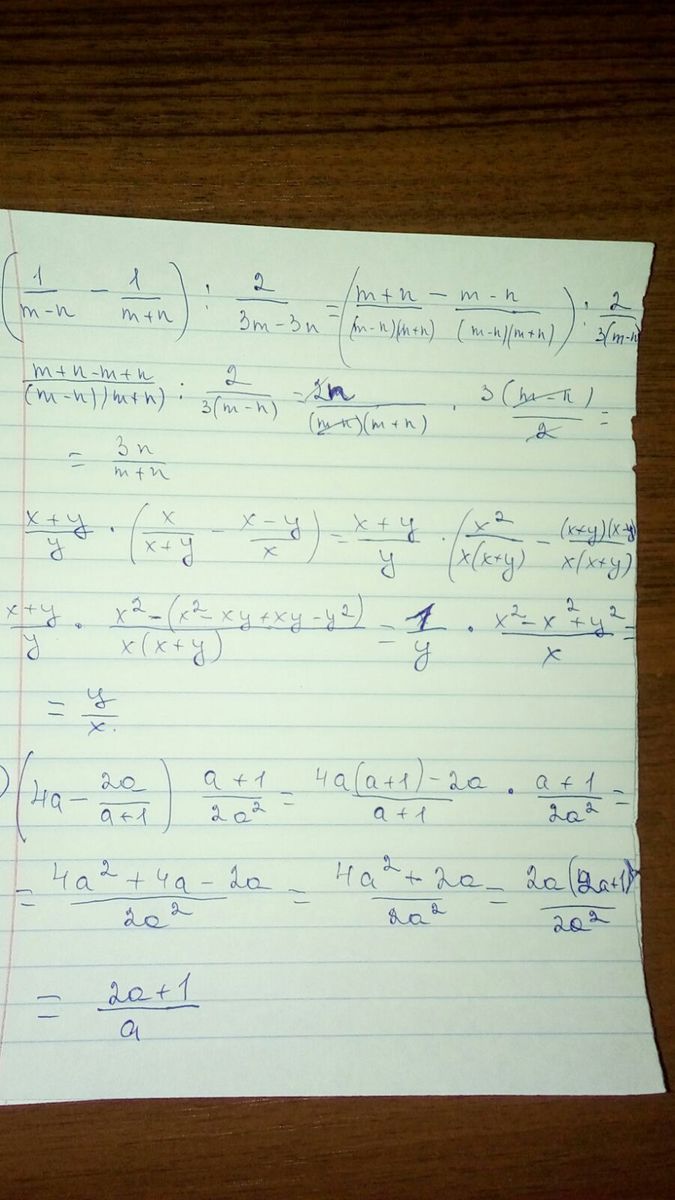 (1/(m-n) - 1/(m+n)) : 2/(3m-3n) = ((m+n)/((m-n)(m+n)) - (m-n)/((m-n)(m+n))) : 2/(3(m-n)
(m+n-m+n)/((m-n)(m+n)) : 2/(3(m-n)) = 2n/((m-n)(m+n)) · 3(m-n)/2 =
= 3n/(m+n)
(x+y)/y · (x/(x+y) - (x-y)/x) = (x+y)/y · (x²/(x(x+y)) - (x+y)(x-y)/(x(x+y))
(x+y)/y · (x²-(x²-xy+xy-y²))/(x(x+y)) = 1/y · (x²-x²+y²)/x =
= y/x.
) (4a - 2a/(a+1)) (a+1)/(2a²) = (4a(a+1)-2a)/(a+1) · (a+1)/(2a²) =
= (4a²+4a-2a)/(2a²) = (4a²+2a)/(2a²) = 2a(2a+1)/(2a²)
= (2a+1)/a